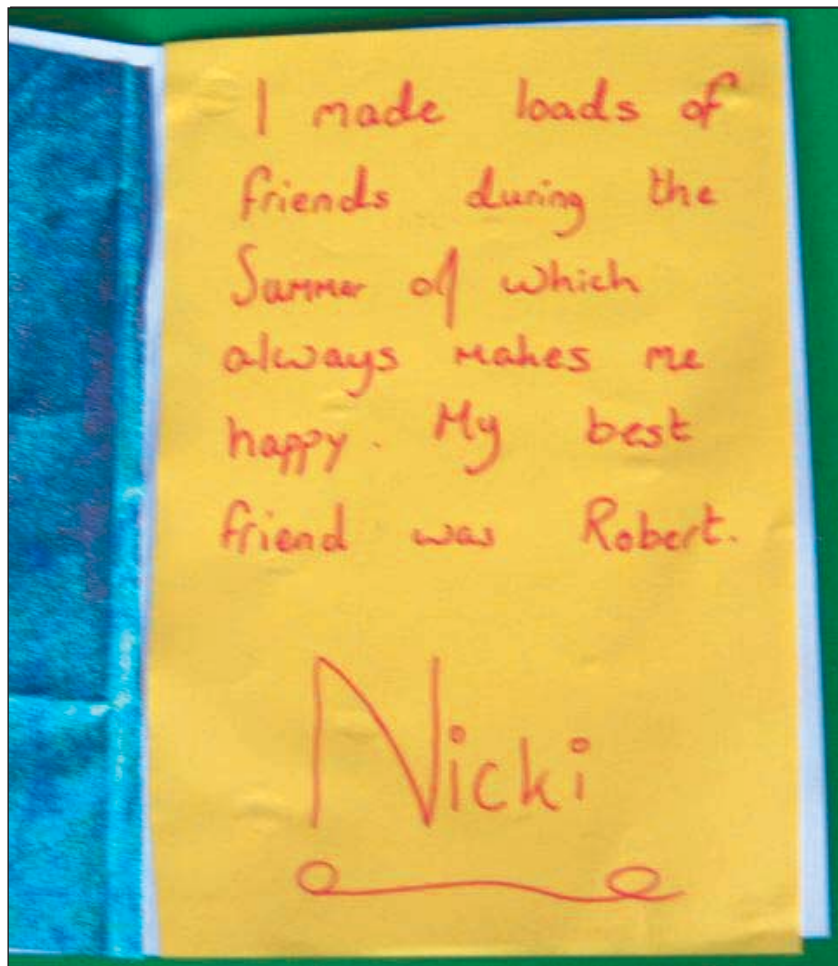 I made loads of
friends during the
Summer of which
always makes me
happy. My best
friend was Robert.
Nicki